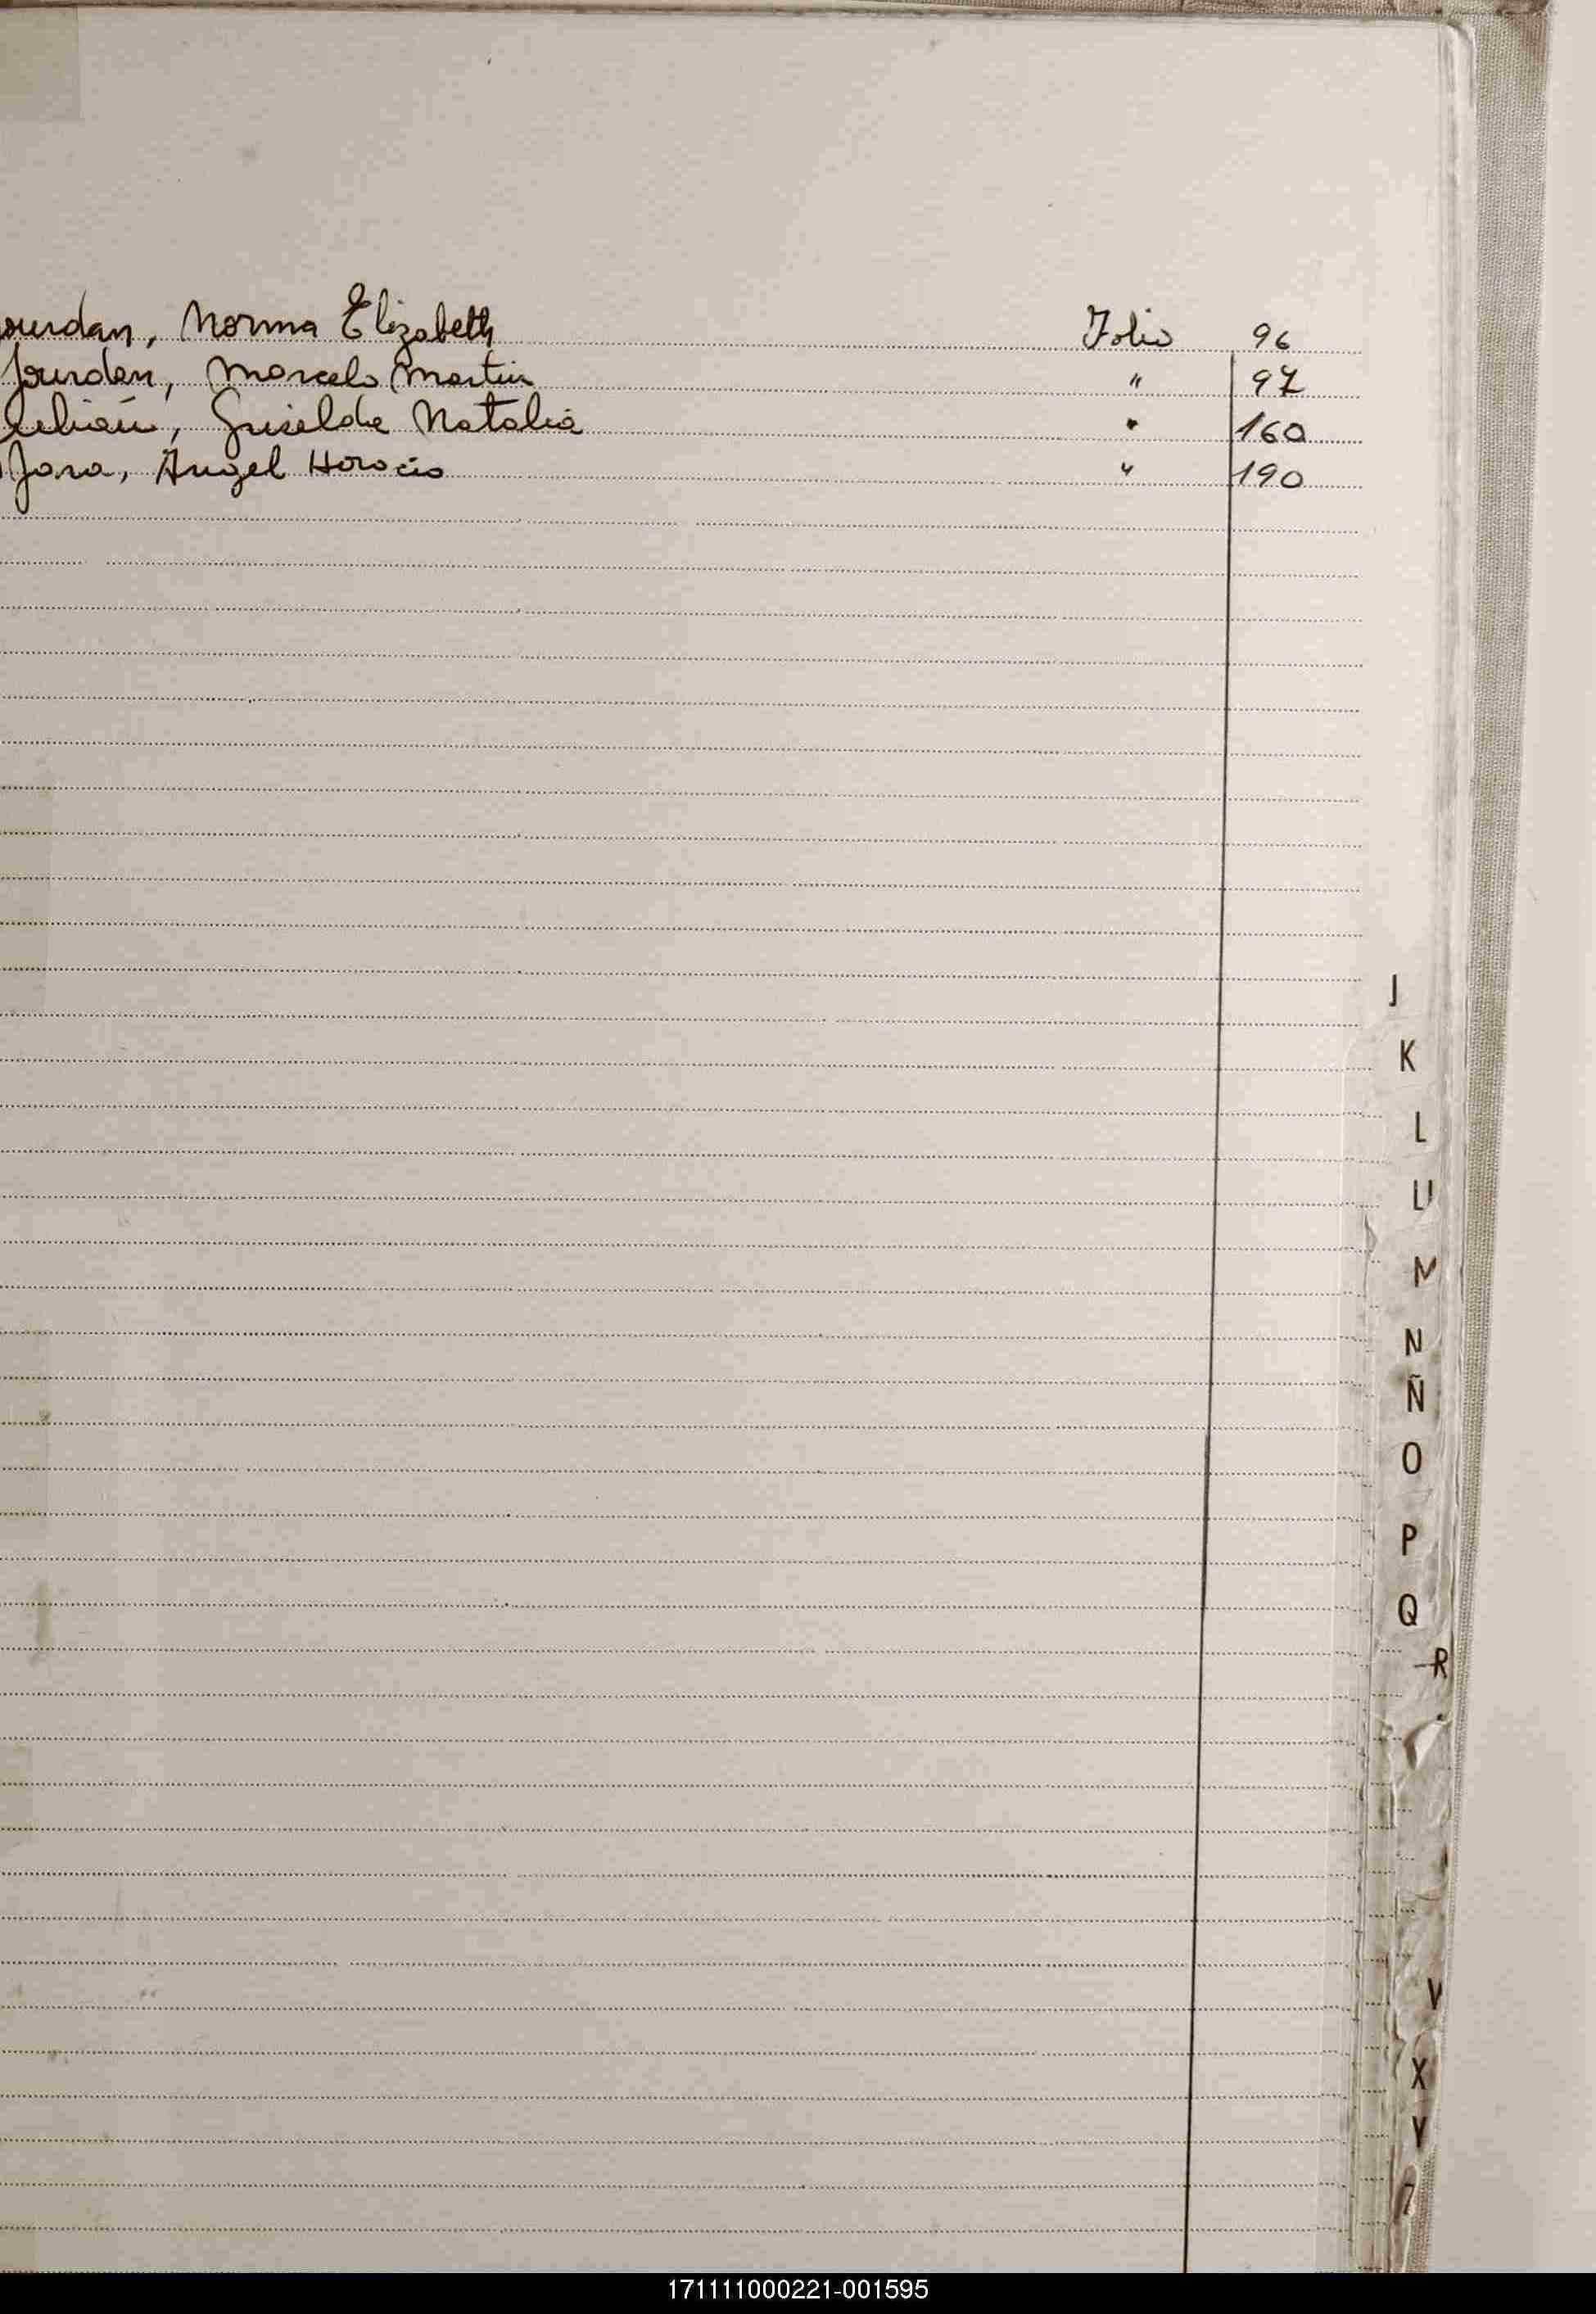 ourdan, Norma Elizabeth Folio 96
Jourdan, Marcelo Martin " 97
Griselda Natalia " 160
Jara, Angel Horacio " 190
J
K
L
Ll
M
N
Ñ
O
P
Q
R
V
X
Y
Z
171111000221-001595